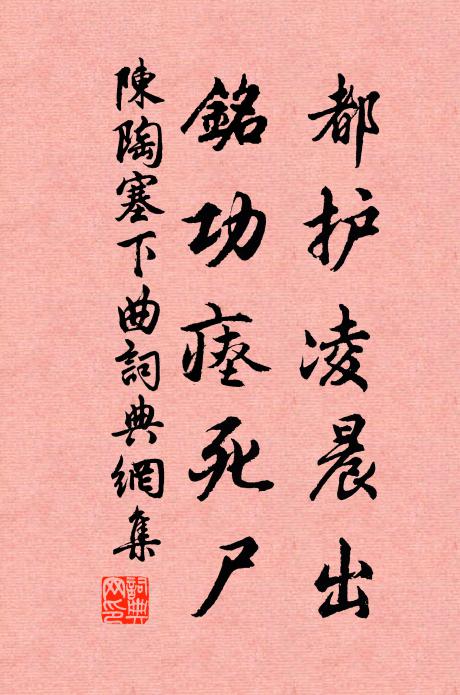 都护凌晨出
銘功瘞死尸
陳陶塞下曲詞典網集
詞典網印